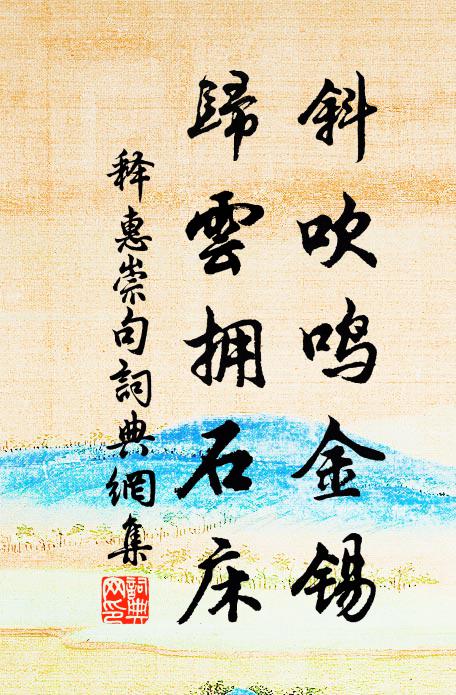 斜吹鸣金锡
歸雲拥石床
释惠崇句詞典網集